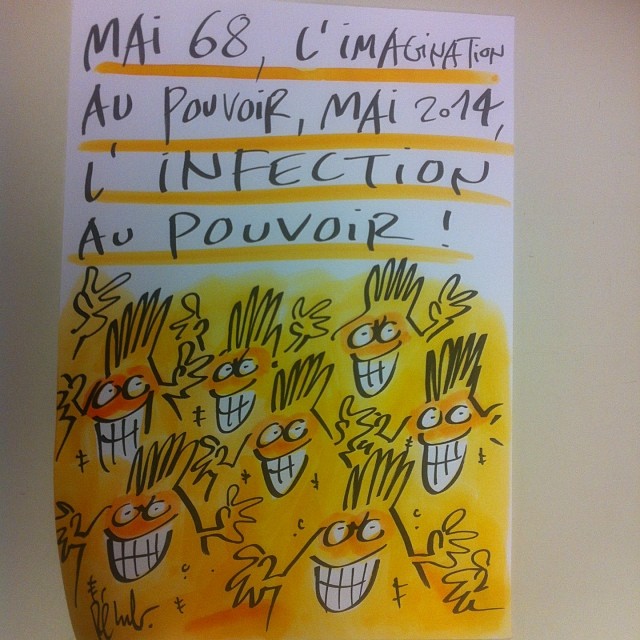 MAI 68, L'IMAGINATION
AU POUVOIR, MAI 2014,
L'INFECTION
AU POUVOIR !